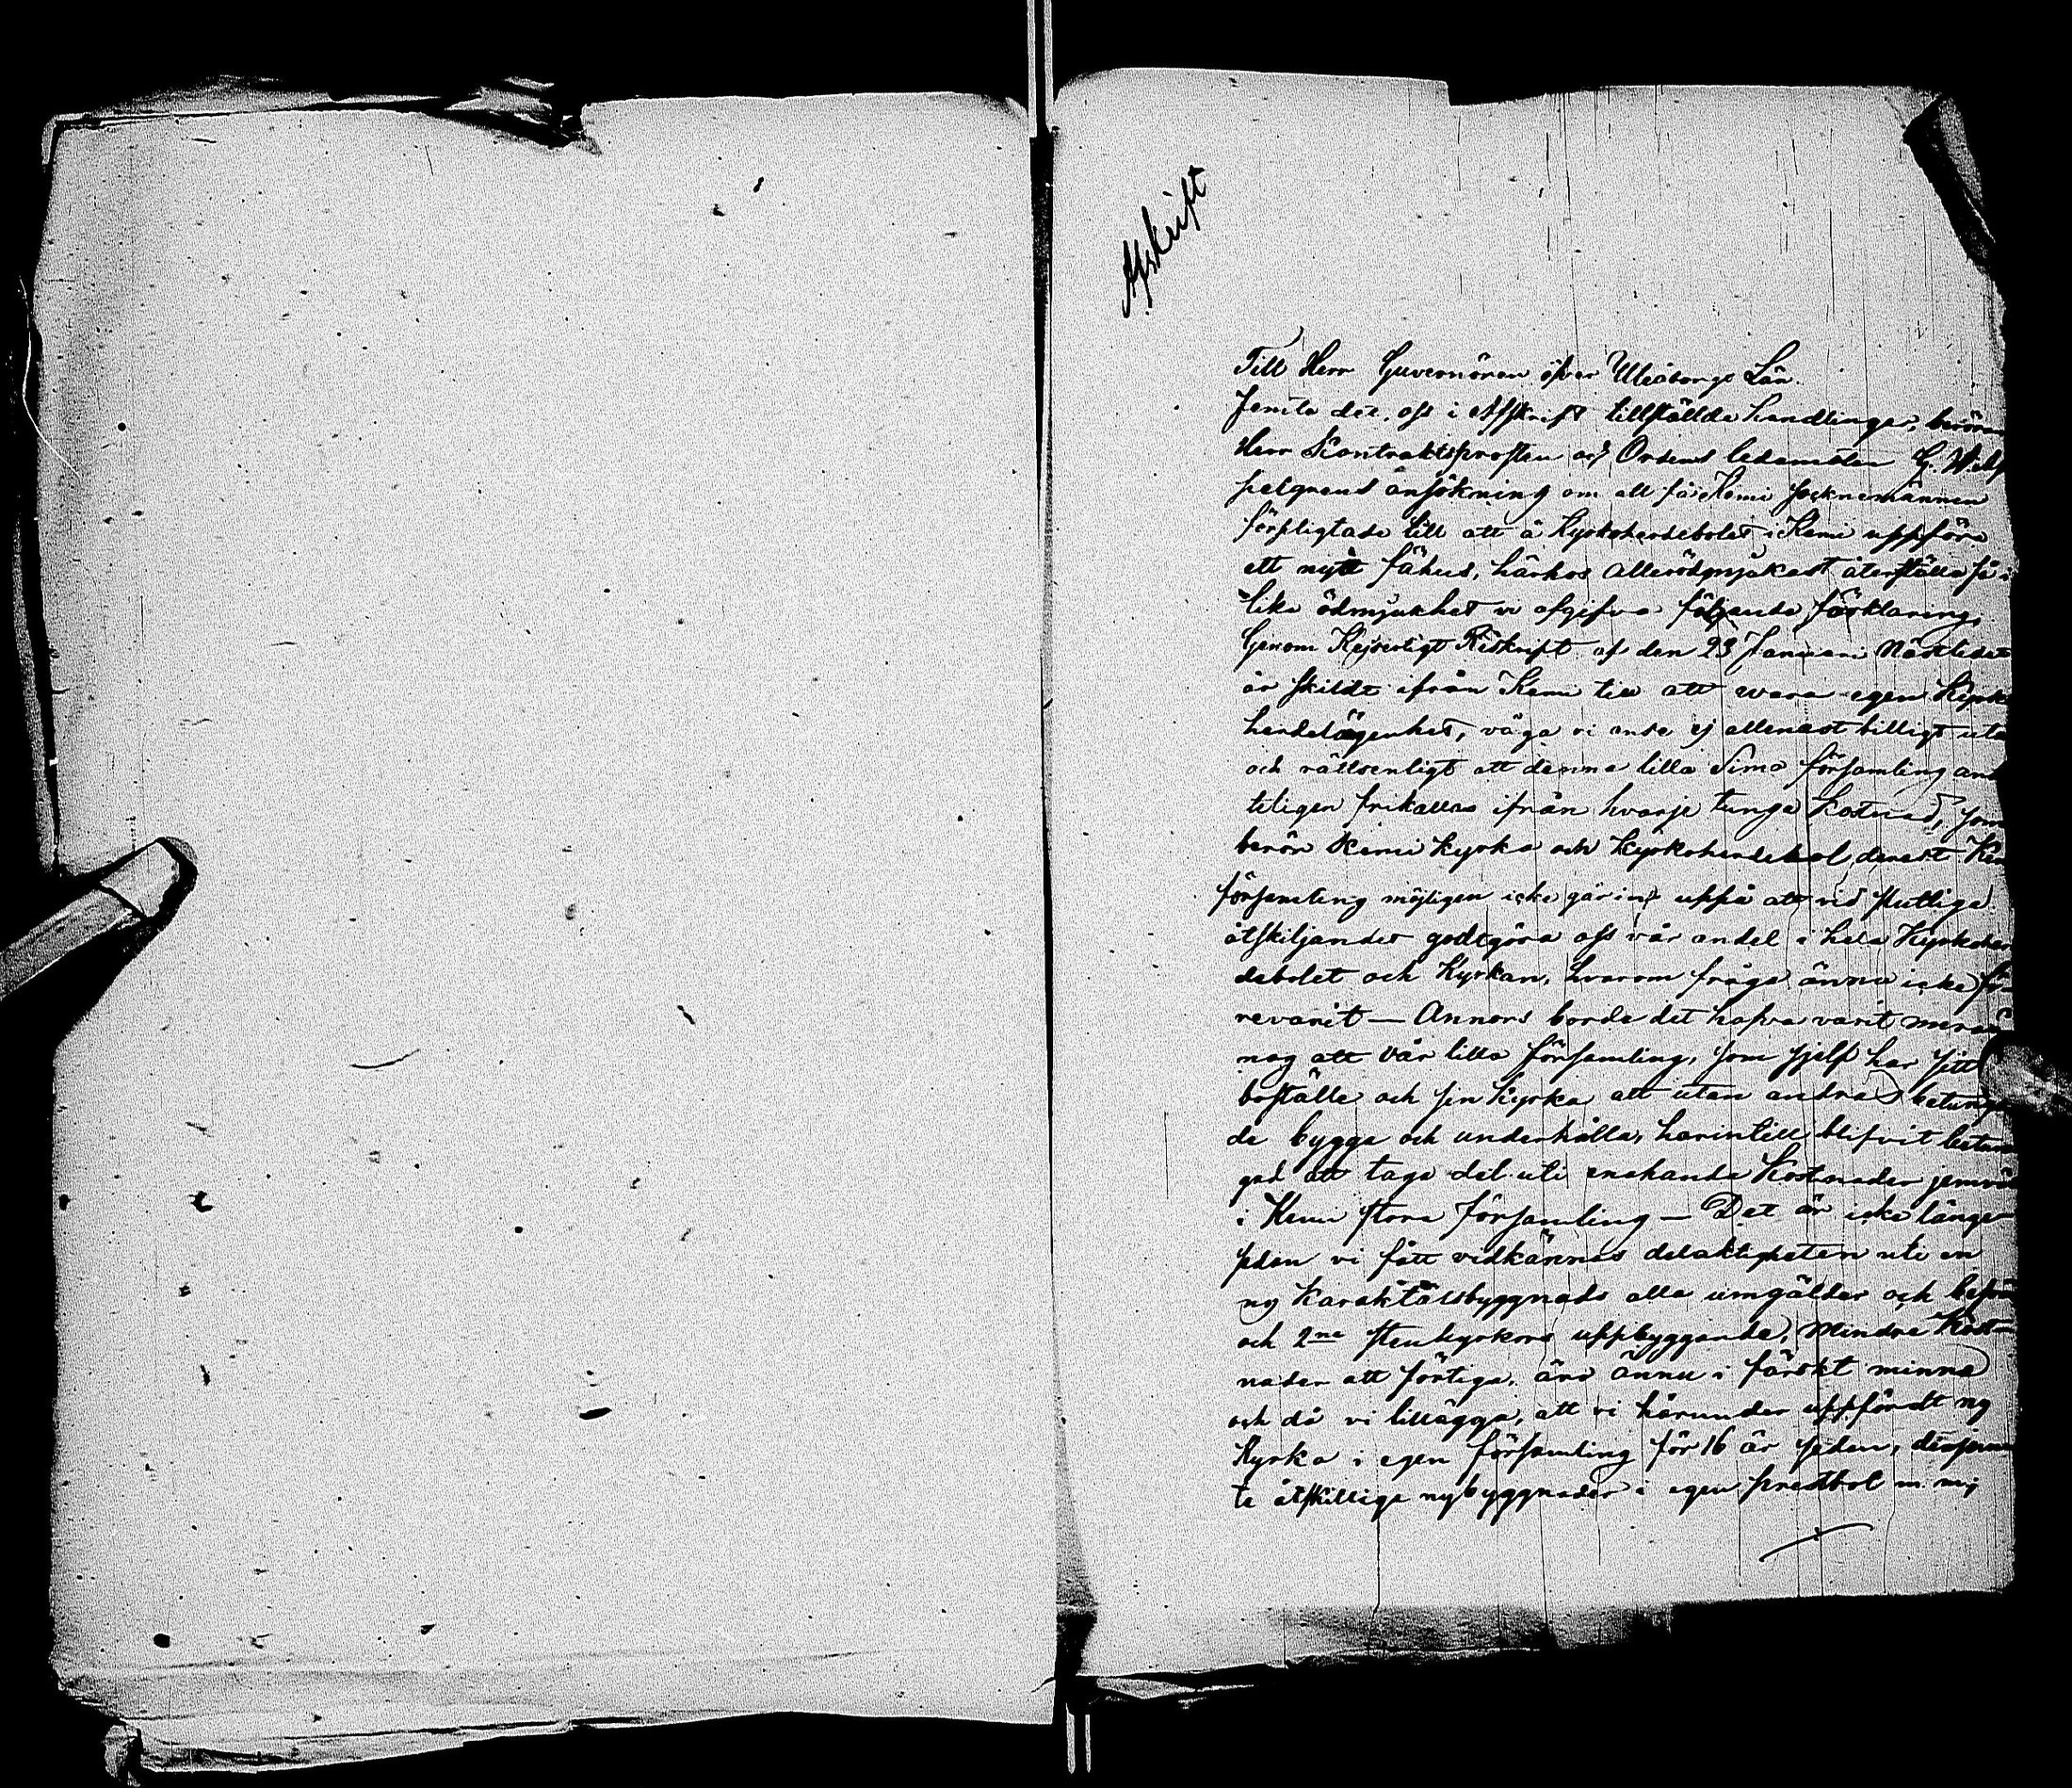 Afskrift
Till Herr Guvernören öfver Uleåborgs Län.
Jemte de oss i Afskrift tillställda handlingar, berör
Herr Kontraktsprosten och Ordens ledamoten G.
pelgrens ansökning om att få Kemi socknemännen
förpligtade till att å Kyrkoherdebolet i Kemi uppföra
ett nytt fähus, härhos allerödmjukast återställa få i
lika ödmjukhet vi afgifva följande förklaring.
Genom Kejserligt Reskript af den 23 Januari Nästledet
är skildt ifrån Kemi till att wara egen Kyrk
herdelägenhet, våga vi anse ej allenast billigt uta
och rättsenligt att denna lilla Simo församling
teligen frikallas ifrån hvarje tunga Kostnad, som
berör Kemi kyrka och Kyrkoherdebol, derest Ke
församling möjligen icke går in uppå att vid slutliga
åtskiljandet godtgöra oss vår andel i hela Kyrkoher
debolet och Kyrkan, hvarom fråga ännu icke fö
revarit — Annors borde det hafva varit mera
nog att vår lilla församling, som sjelf har sitt
boställe och sin Kyrka att utan andras betung
de bygga och underhålla, härintill blifvit betun
gad att taga del uti enahanda Kostnader jemvä
i Kemi stora församling — Det är icke länge
sedan vi fått vidkännas delaktigheten uti en
ny Karaktärsbyggnads alla umgälder och
och 2ne stenkyrkors uppbyggande, Mindre Kost-
nader att förtiga, äro ännu i färskt minne
och då vi tillägga, att vi härunder uppfördt ny
Kyrka i egen församling för 16 år sedan, dessjem
te åtskilliga nybyggnader i egen prestbol m. m;